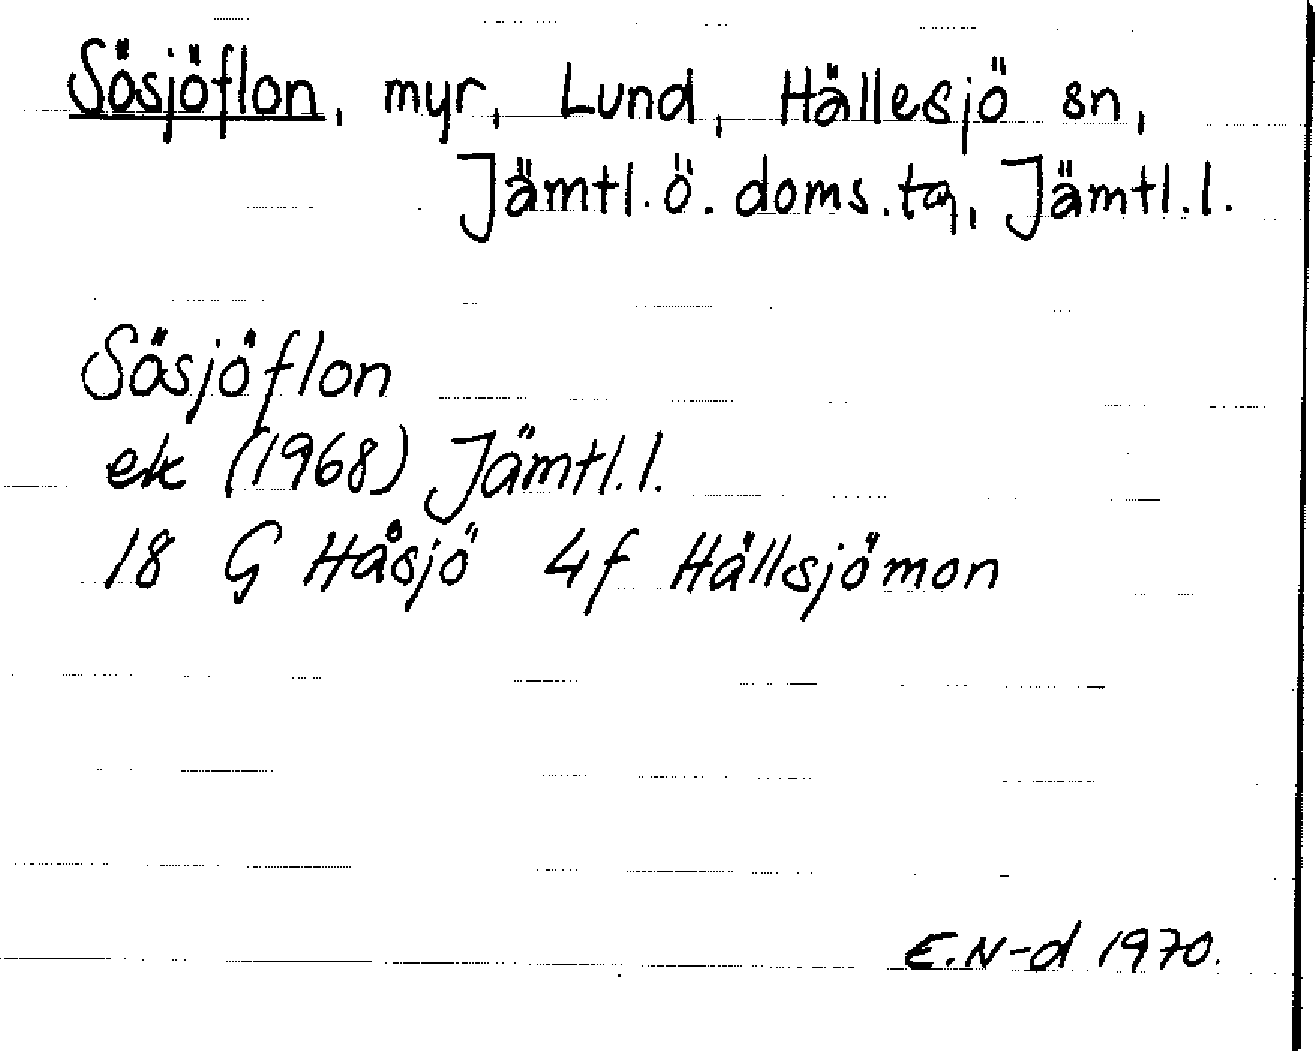 Sösjöflon, myr, Lund, Hällesjö sn,
Jämtl. ö. doms.tg, Jämtl. l.
Sösjöflon
ek (1968) Jämtl. l.
18 G Håsjö 4f Hällsjömon
E.N-d 1970.